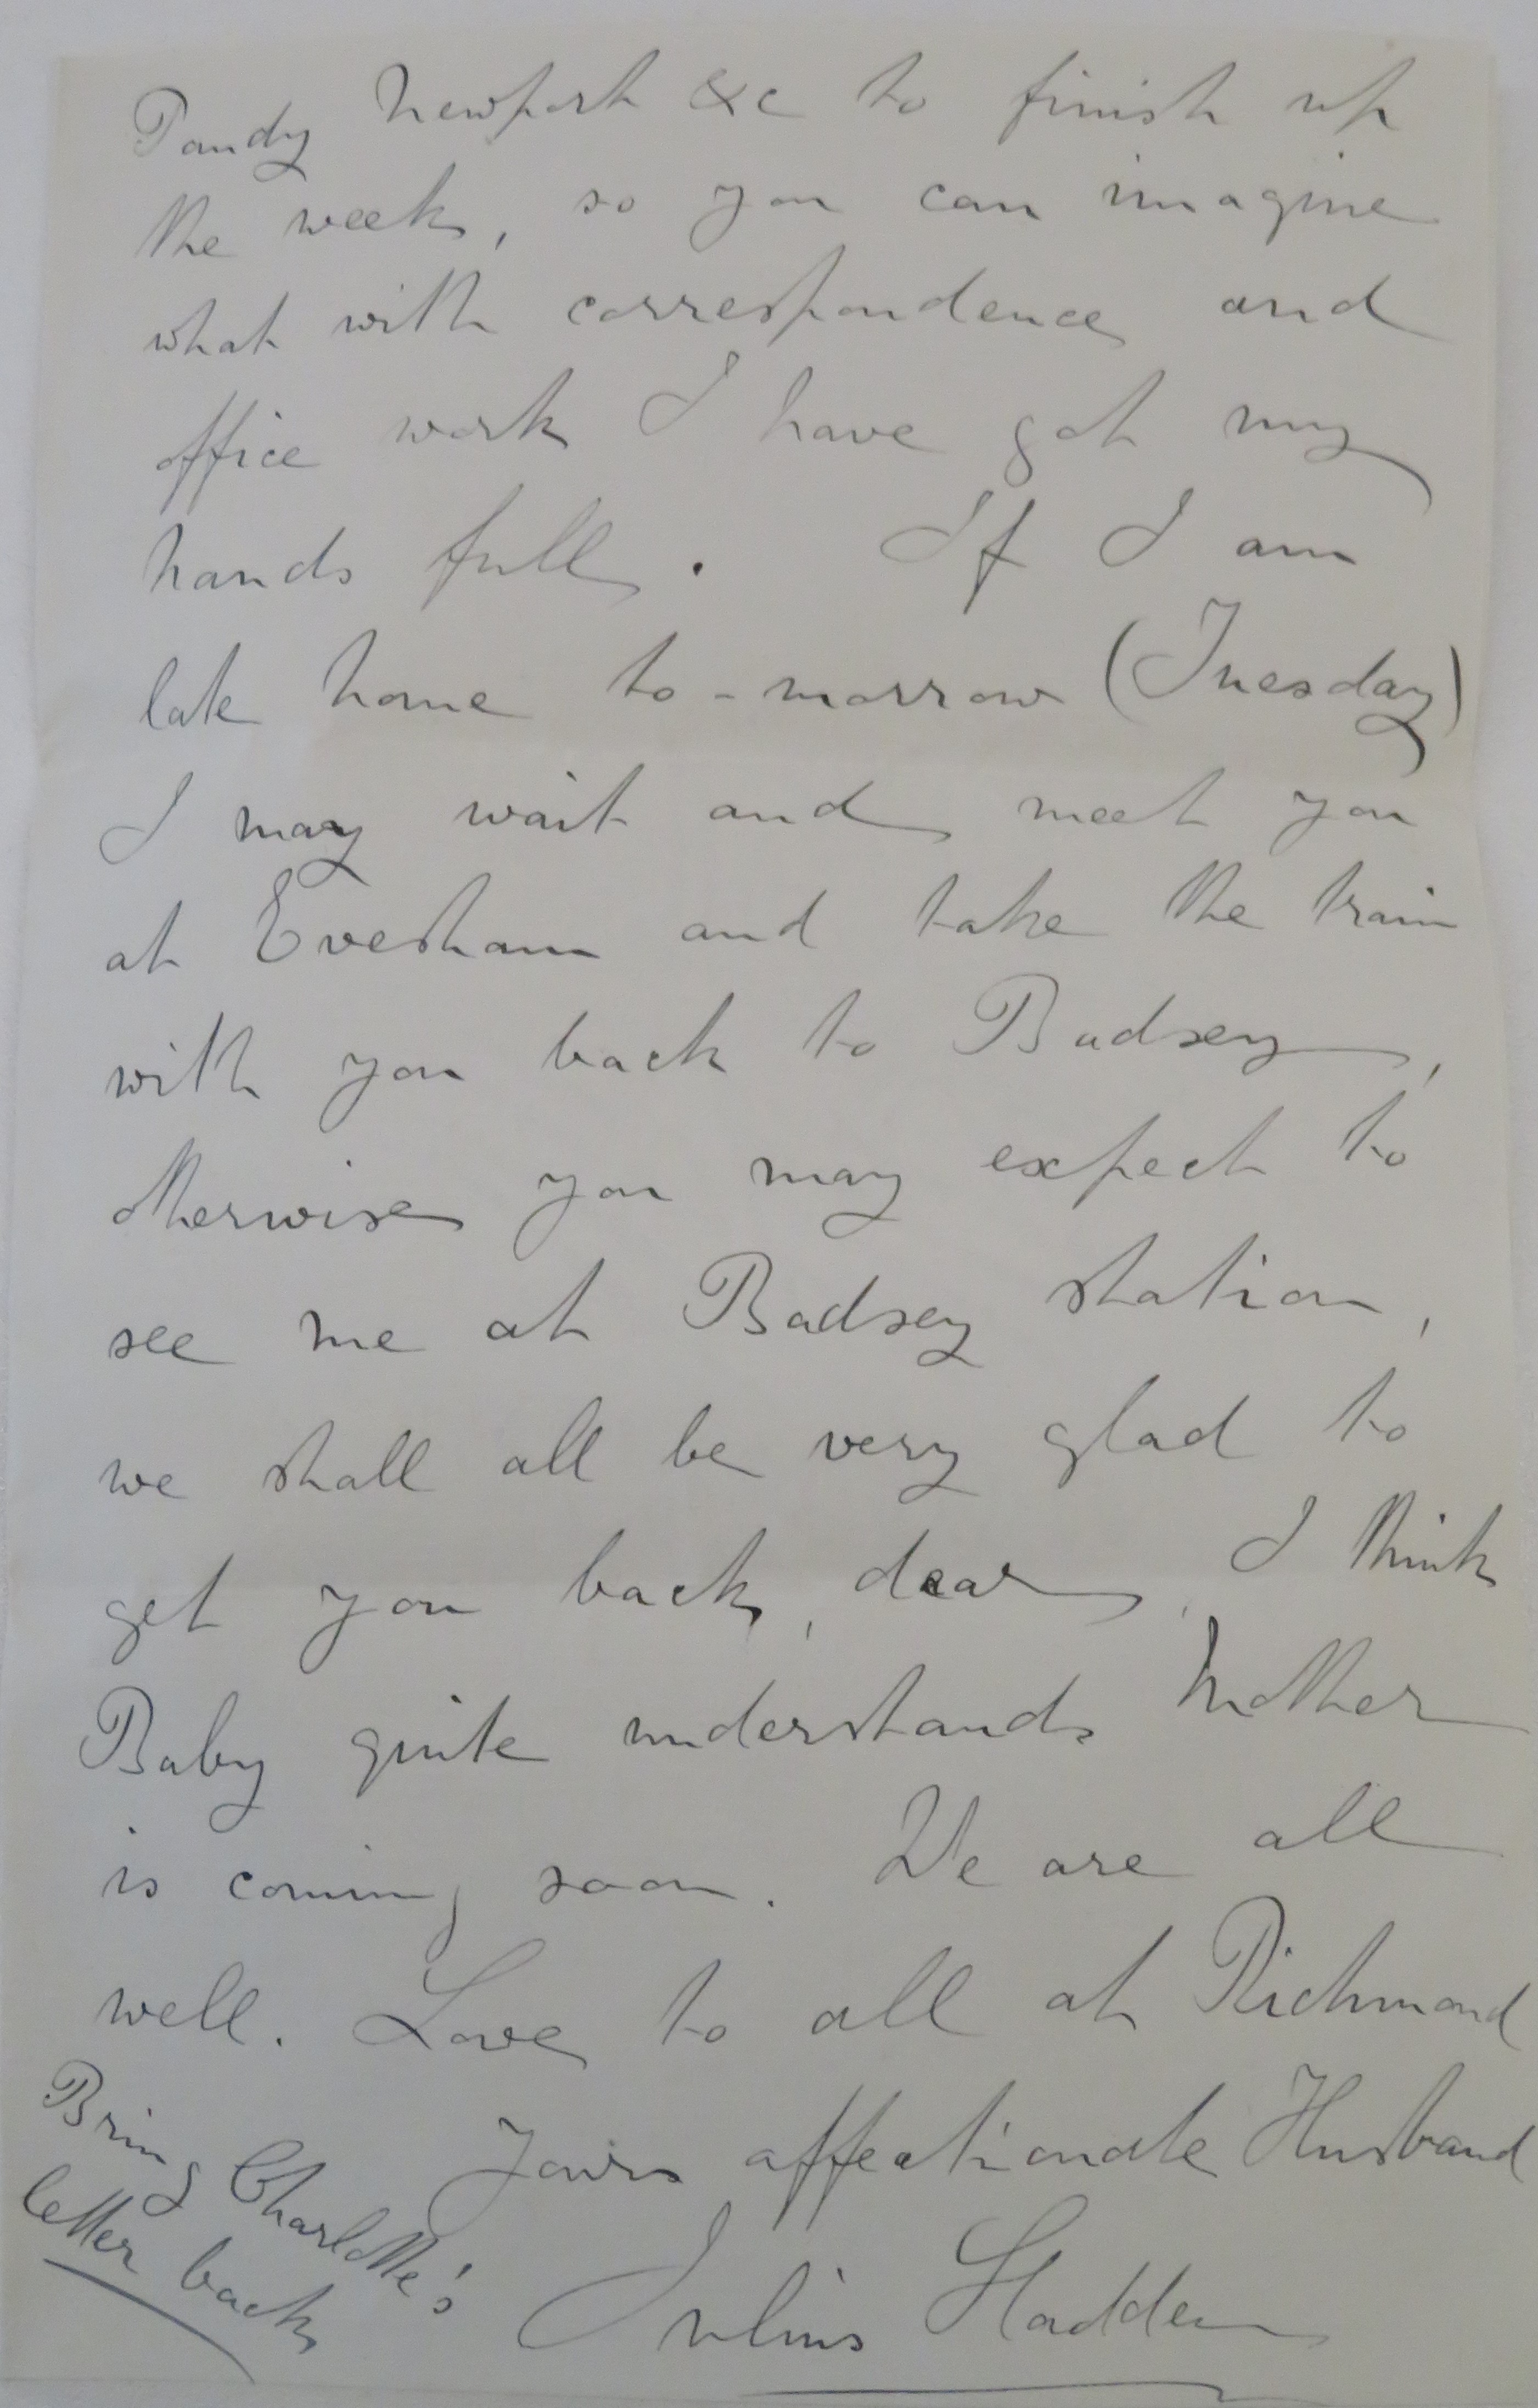 Pandy Newport &c to finish up
the week, so you can imagine
what with correspondence and
office work I have got my
hands full. If I am
late home to-morrow (Tuesday)
I may wait and meet you
at Evesham and take the train
with you back to Badsey,
otherwise you may expect to
see me at Badsey station,
we shall all be very glad to
get you back, dear, I think
Baby quite understands Mother
is coming soon. We are all
well. Love to all at Richmond
Yours affectionate Husband
Julius Sladden
Bring Charlotte's
letter back